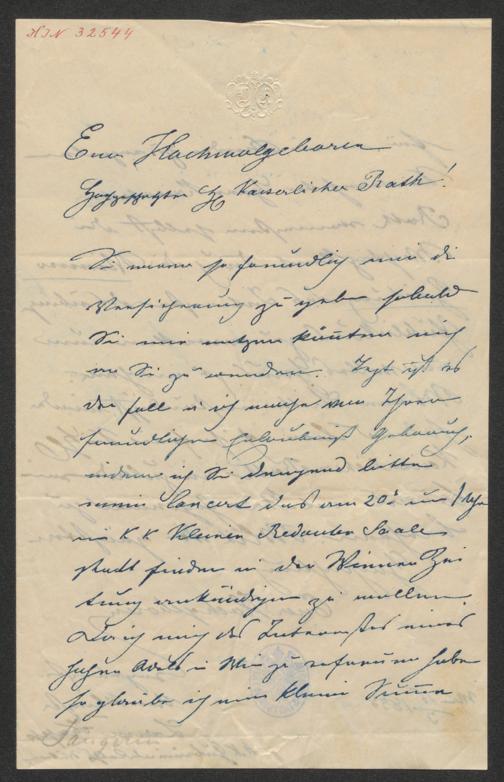 HIN 32544
Euer Hochwolgeboren
Hochgeschätzter H. Kaiserlicher Rath!
Sie waren so freundlich mir die
Versicherung zu geben sobald
Sie mir nützen könnten mich
an Sie zu wenden. Jetzt ist es
der Fall u ich mache von Ihrer
freundlichen Erlaubniß Gebrauch,
indem ich Sie dringend bitte
mein Concert das am 20t um 1/2 Uhr
im K K Kleinen Redouten Saale
statt finden in der Wiener Zei
tung ankündigen zu wollen.
Da ich mich des Interesses eines
hohen Adels in Wien zu erfreuen habe
so glaube ich eine kleine